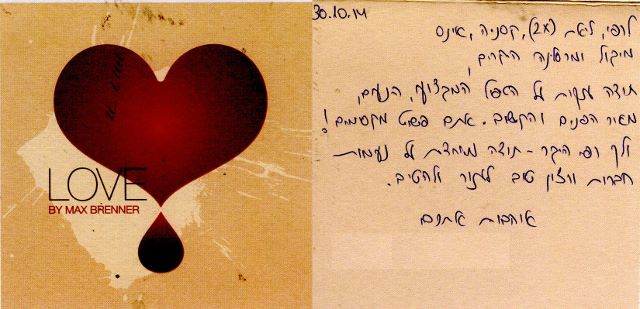 LOVE
BY MAX BRENNER
30.10.14
לרפי, ליאב (x2), קסניה, אינס
מיקול ומרטינה היקרים,
תודה ענקית על הטיפול המקצועי, הנעים,
מאור הפנים והקשוב. אתם פשוט מקסימים!
ולך רפי היקר - תודה מיוחדת על נעימות
חברות ורצון טוב לעזור ולהטיב.
אוהבות אתכם